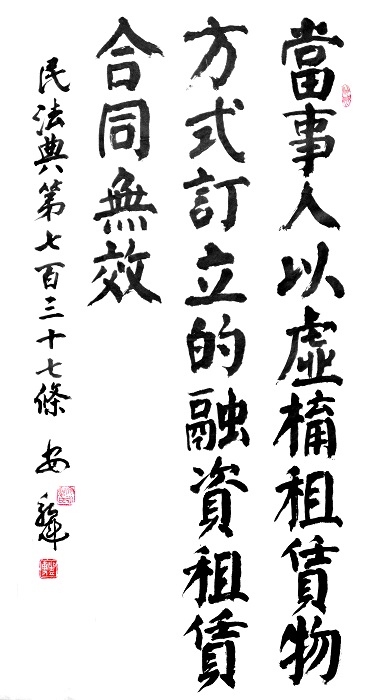 當事人以虛構租賃物
方式訂立的融資租賃
合同無效
民法典第七百三十七條 安